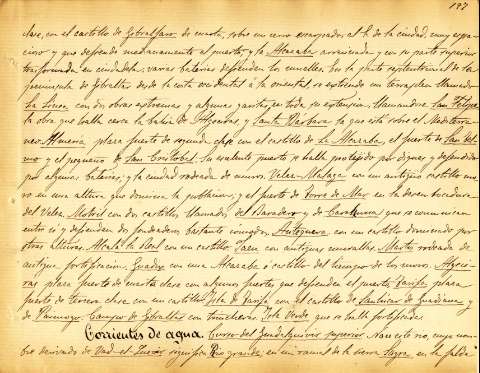 197
clase, con el castillo de Gibralfaro de cuarta, sobre un cerro escarpado, al E. de la ciudad, muy espa-
cioso y que defiende medianamente el puerto, y la Alcazaba arruinada y en su parte superior
trasformada en ciudadela; varias baterias defienden los muelles. En la parte septentrional de la
península de Gibraltar desde la costa occidental á la oriental, se extiende un terraplen llamado
La Linea con dos obras extremas y algunas garitas en toda su extension. Llamandose San Felipe
la obra que halla cerca la bahia de Algeciras y Santa Bárbara la que está sobre el Mediterra-
neo. Almeria plaza fuerte de segunda clase con el castillo de La Alcazaba, el fuerte de San Tel-
mo y el pequeño de San Cristobal. Su excelente puerto se halla protejido por diques y defendido
por algunas baterias, y la ciudad rodeada de muros. Velez-Málaga con un antiguo castillo mo-
ro en una altura que domina la poblacion, y el fuerte de Torre de Mar en la desembocadura
del Velez. Motril con dos castillos llamados del Baradero y de Carchuna que se comunican
entre si y defienden dos fondeaderos bastante comodos. Antequera, con un castillo dominado por
otras alturas. Alcalá la Real con un castillo. Jaen con antiguas murallas. Martos rodeada de
antiguas fortificaciones. Guadix con una Alcazaba ó castillo del tiempo de los moros. Algeci-
ras plaza fuerte de cuarta clase con algunos fuertes que defienden el puerto. Tarifa, plaza
fuerte de tercera clase con un castillo. Isla de Tarifa con el castillo de Sanlucar de Guadiana y
de Paimogo. Campo de Gibraltar con trincheras. Isla Verde que se halla fortificada.
Corrientes de agua. Curso del Guadalquivir superior. Nace este rio, cuyo nom-
bre derivado de Uad-el-Kevir significa Rio grande, en un ramal de la sierra Sagra, en la falda